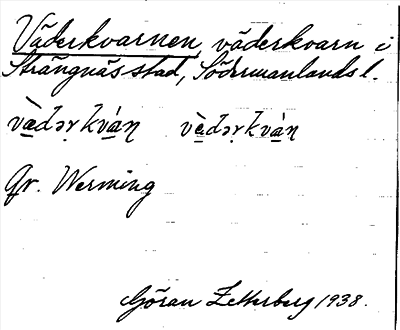 Väderkvarnen, väderkvarn i
Strängnäs stad, Södermanlands l.
væ̀dəṛkván vèdəṛkván
Gr. Werming
Göran Zetterberg 1938.